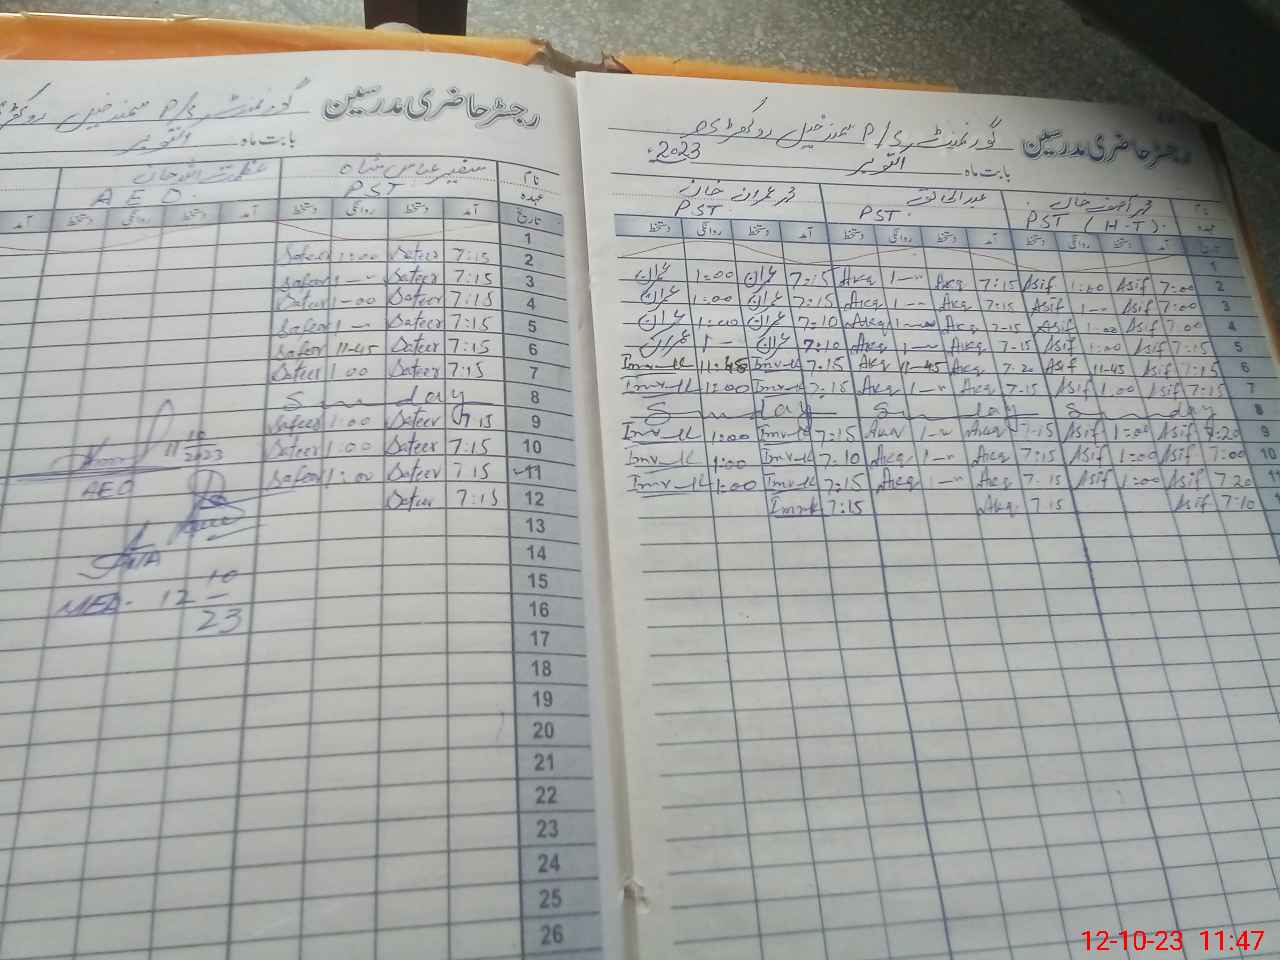 رجسٹر حاضری مدرسین گورنمنٹ P/S سمندر خیل روکھڑی
بابت ماہ اکتوبر 2023
نام
عہدہ PST (H-T) PST PST
تاریخ آمد دستخط روانگی دستخط آمد دستخط روانگی دستخط آمد دستخط روانگی دستخط
1
2 7:00 Asif 1:00 Asif 7:15 Akq 1-- Akq 7:15 عمران 1:00 عمران
3 7:00 Asif 1-- Asif 7:15 Akq 1-- Akq 7:15 عمران 1:00 عمران
4 7:00 Asif 1:00 Asif 7-15 Akq 1-00 Akq 7:10 عمران 1:00 عمران
5 7:15 Asif 1:00 Asif 7-15 Akq 1-- Akq 7:10 عمران 1- عمران
6 7:15 Asif 11-45 Asif 7.20 Akq 11-45 Akq 7:15 11:45
7 7:15 Asif 1:00 Asif 7:15 Akq 1-- Akq 7:15 1:00
8 Sunday Sunday Sunday
9 7:20 Asif 1:00 Asif 7-15 Akq 1-- Akq 7:15 1:00
10 7:00 Asif 1:00 Asif 7:15 Akq 1-- Akq 7:10 1:00
11 7:20 Asif 1:00 Asif 7.15 Akq 1-- Akq 7:15 1:00
7:10 Asif 7.15 Akq 7:15
رجسٹر حاضری مدرسین گورنمنٹ P/S سمندر خیل روکھڑی
بابت ماہ اکتوبر
نام سفیر عباس شاہ عظمت اللہ خان
عہدہ PST AEO
تاریخ آمد دستخط روانگی دستخط آمد دستخط روانگی دستخط آمد
1
2 7:15 Safeer 1:00 Safeer
3 7:15 Safeer 1-- Safeer
4 7:15 Safeer 1-00 Safeer
5 7:15 Safeer 1-- Safeer
6 7:15 Safeer 11-45 Safeer
7 7:15 Safeer 1:00 Safeer
8 Sunday
9 7:15 Safeer 1:00 Safeer
10 7:15 Safeer 1:00 Safeer
11 7:15 Safeer 1:00 Safeer
12 7:15 Safeer
13
14
15
16
17
18
19
20
21
22
23
24
25
26
11 10 2023
AEO
MEA- 12 10 23
12-10-23 11:47